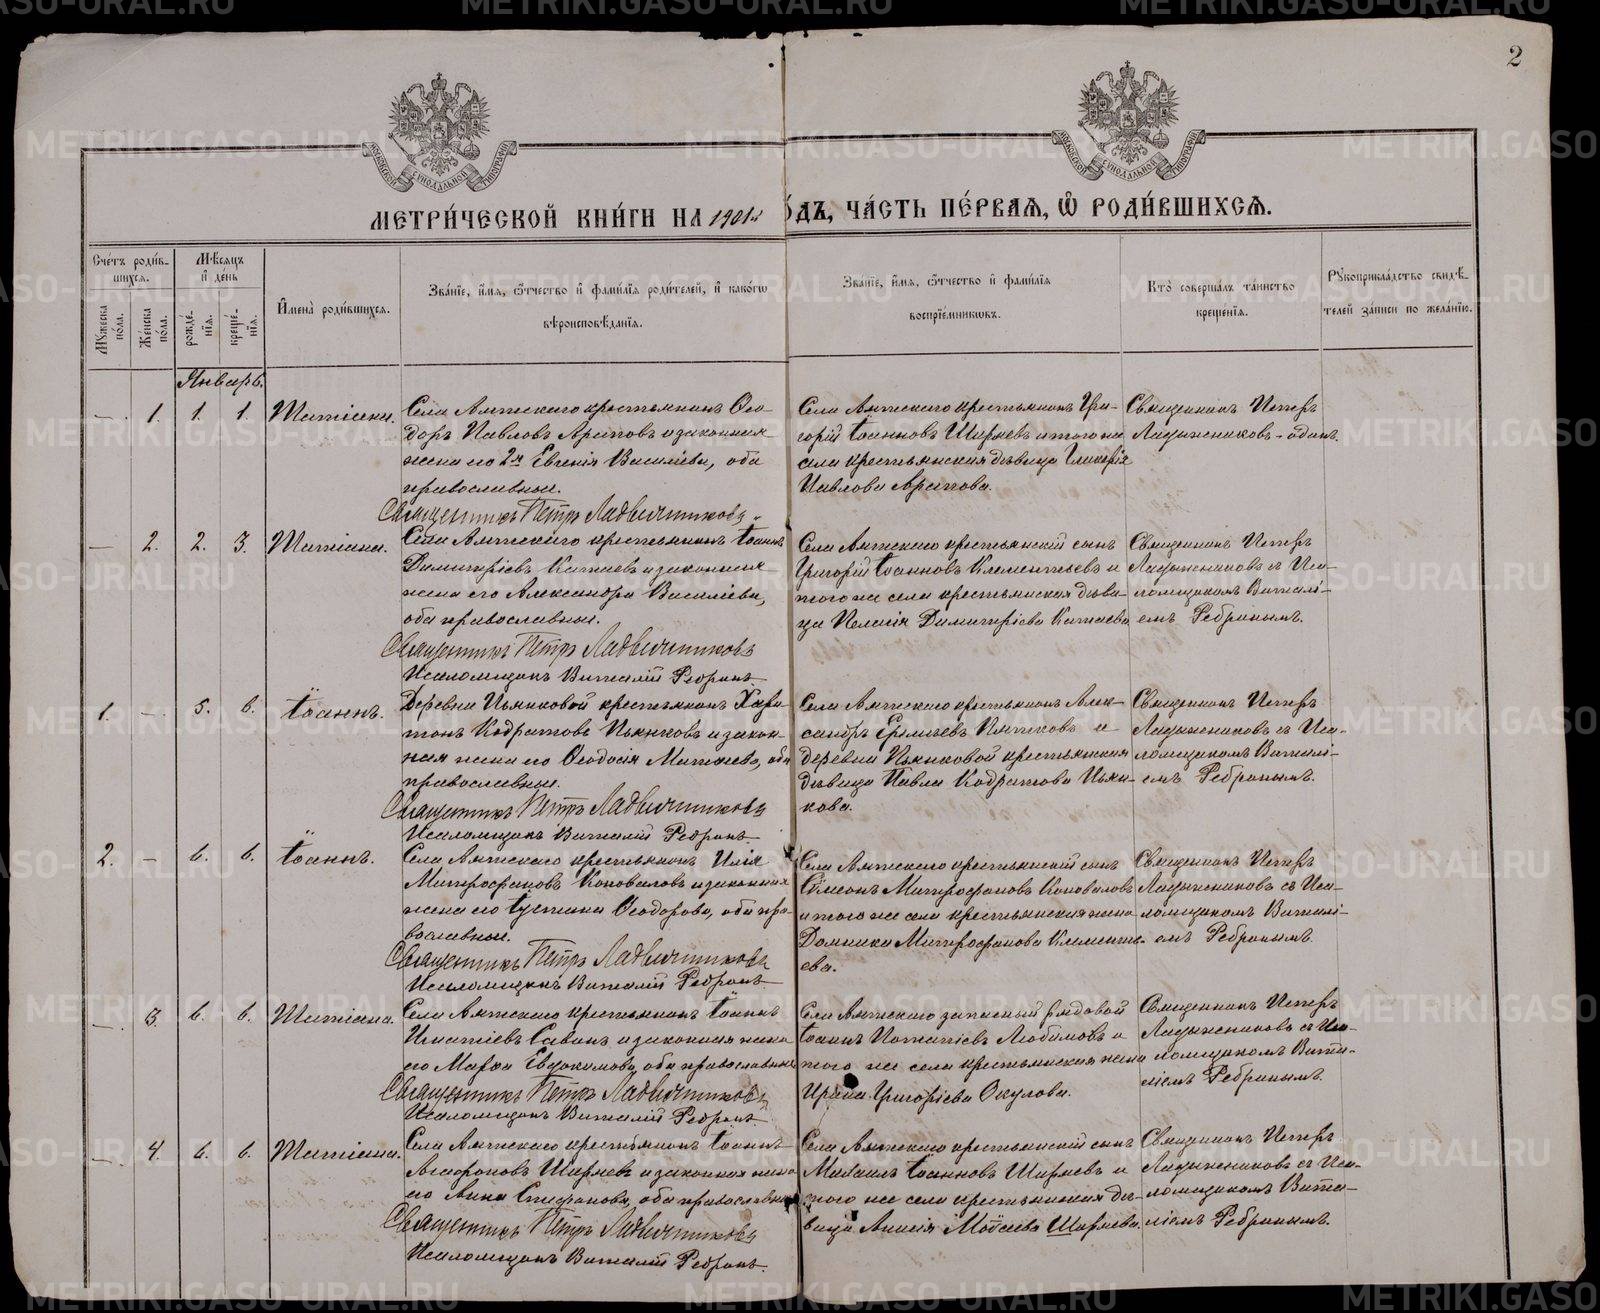 2
МЕТРИ́ЧЕСКОЙ КНИ́ГИ НА 1901й ГО́ДЪ, ЧА́СТЬ ПЕ́РВАѦ, Ѽ РОДИ́ВШИХСѦ.
Сче́тъ роди́в-
шихсѧ.
Мꙋ́жеска по́ла.
Же́нска по́ла.
Мѣ́сѧцъ и҆ де́нь
рожде́-
нїѧ.
креще́-
нїѧ.
И҆мена̀ роди́вшихсѧ.
Зва́нїе, и҆́мѧ, ѻ҆́тчество и҆ фами́лїѧ роди́телей, и҆ како́гѡ
вѣроисповѣ́данїѧ.
Зва́нїе, и҆́мѧ, ѻ҆́тчество и҆ фами́лїѧ
воспрїе́мникѡвъ.
Кто̀ соверша́лъ та́инство
креще́нїѧ.
Рꙋкоприкла́дство свидѣ́-
телей за́писи по жела́нїю.
Январь.
— 1. 1. 1. Татіана.
Села Аятскаго крестьянинъ Ѳео-
доръ Павловъ Араповъ и законная
жена его 2я Евгенія Васильева, оба
православные.
Священникъ Петръ Ладыжниковъ
Села Аятскаго крестьянинъ Гри-
горій Іоанновъ Ширяевъ и того же
села крестьянская дѣвица Гликерія
Павлова Арапова.
Священникъ Петръ
Ладыжниковъ - одинъ.
— 2. 2. 3. Татіана.
Села Аятскаго крестьянинъ Іоаннъ
Димитріевъ Катаевъ и законная
жена его Александра Васильева,
оба православные.
Священникъ Петръ Ладыжниковъ
Псаломщикъ Виталій Ребринъ
Села Аятскаго крестьянскій сынъ
Григорій Іоанновъ Клементьевъ и
того же села крестьянская дѣви-
ца Пелагія Димитріева Катаева
Священникъ Петръ
Ладыжниковъ с Пса-
ломщикомъ Виталі-
емъ Ребринымъ.
1. — 5. 6. Іоаннъ.
Деревни Пьянковой крестьянинъ Хари-
тонъ Кодратовъ Пьянковъ и закон-
ная жена его Ѳеодосія Матѳиева, оба
православные.
Священникъ Петръ Ладыжниковъ
Псаломщикъ Виталій Ребринъ
Села Аятскаго крестьянинъ Алек-
сандръ Ермиевъ Пятковъ и
деревни Пьянковой крестьянская
дѣвица Павла Кодратова Пьян-
кова.
Священникъ Петръ
Ладыжниковъ с Пса-
ломщикомъ Виталі-
емъ Ребринымъ.
2. — 6. 6. Іоаннъ.
Села Аятскаго крестьянинъ Илія
Митрофановъ Коноваловъ и законная
жена его Іустина Ѳеодорова, оба пра-
вославные.
Священникъ Петръ Ладыжниковъ
Псаломщикъ Виталій Ребринъ
Села Аятскаго крестьянскій сынъ
Сѵмеонъ Митрофановъ Коноваловъ
и того же села крестьянская жена
Домника Митрофанова Клементь-
ева.
Священникъ Петръ
Ладыжниковъ съ Пса-
ломщикомъ Виталі-
емъ Ребринымъ.
— 3. 6. 6. Татіана.
Села Аятскаго крестьянинъ Іоаннъ
Игнатіевъ Савинъ и законная жена
его Марѳа Евдокимова, оба православные
Священникъ Петръ Ладыжниковъ
Псаломщикъ Виталій Ребринъ
Села Аятскаго запасный рядовой
Іоаннъ Потапіевъ Любимовъ и
того же села крестьянская жена
Ирина Григоріева Окулова.
Священникъ Петръ
Ладыжниковъ съ Пса-
ломщикомъ Вита-
ліемъ Ребринымъ.
— 4. 6. 6. Татіана.
Села Аятскаго крестьянинъ Іоаннъ
Агафоновъ Ширяевъ и законная жена
его Анна Стефанова, оба православные
Священникъ Петръ Ладыжниковъ
Псаломщикъ Виталій Ребринъ.
Села Аятскаго крестьянскій сынъ
Михаилъ Іоанновъ Ширяевъ и
того же села крестьянская дѣ-
вица Анисія Моѵсеева Ширяева.
Священникъ Петръ
Ладыжниковъ съ Пса-
ломщикомъ Вита-
ліемъ Ребринымъ.
METRIKI.GASO-URAL.RU